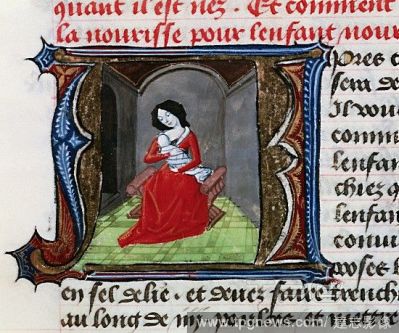 quant il est nez. Et comment
la nourisse pour lenfant nour
Apres c
sera de
Il vou
comm
lenfan
chiez q
lenfan
convie
poses
en sel delie. et devez faire trench
au long de
www.ipgnews.com / 意志影像